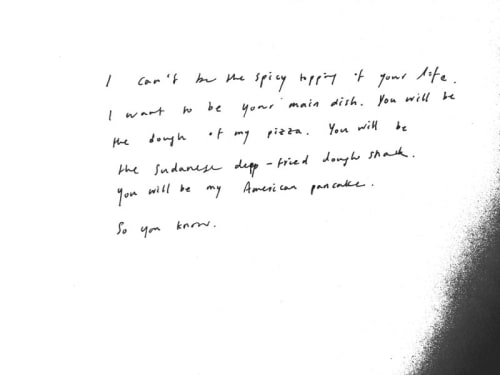 I can't be the spicy topping of your life.
I want to be your main dish. You will be
the dough of my pizza. You will be
the Sudanese deep-fried dough snack.
You will be my American pancake.
So you know.